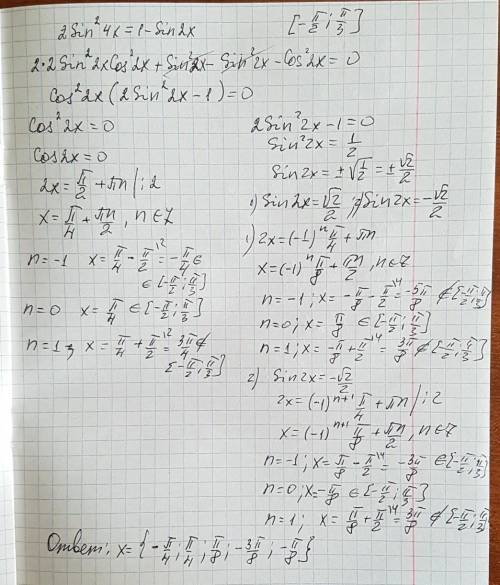 2Sin²4x = 1 - Sin2x [-π/2; π/3]
2·2Sin²2xCos²2x + Sin²2x - Sin²2x - Cos²2x = 0
Cos²2x (2Sin²2x - 1) = 0
Cos²2x = 0
Cos2x = 0
2x = π/2 + πn |:2
x = π/4 + πn/2, n∈Z
n = -1 x = π/4 - π/2 = -π/4 ∈
∈ [-π/2; π/3]
n = 0 x = π/4 ∈ [-π/2; π/3]
n = 1, x = π/4 + π/2 = 3π/4 ∉
[-π/2; π/3]
2Sin²2x - 1 = 0
Sin²2x = 1/2
Sin2x = ±√1/2 = ±√2/2
1) Sin2x = √2/2 2) Sin2x = -√2/2
1) 2x = (-1)ⁿ π/4 + πn
x = (-1)ⁿ π/8 + πn/2, n∈Z
n = -1; x = -π/8 - π/2 = -5π/8 ∉ [-π/2; π/3]
n = 0; x = π/8 ∈ [-π/2; π/3]
n = 1; x = -π/8 + π/2 = 3π/8 ∉ [-π/2; π/3]
2) Sin2x = -√2/2
2x = (-1)ⁿ⁺¹ π/4 + πn |:2
x = (-1)ⁿ⁺¹ π/8 + πn/2, n∈Z
n = -1; x = π/8 - π/2 = -3π/8 ∈ [-π/2; π/3]
n = 0; x = -π/8 ∈ [-π/2; π/3]
n = 1; x = π/8 + π/2 = 3π/8 ∉ [-π/2; π/3]
Ответ: x = {-π/4; π/4; π/8; -3π/8; -π/8}